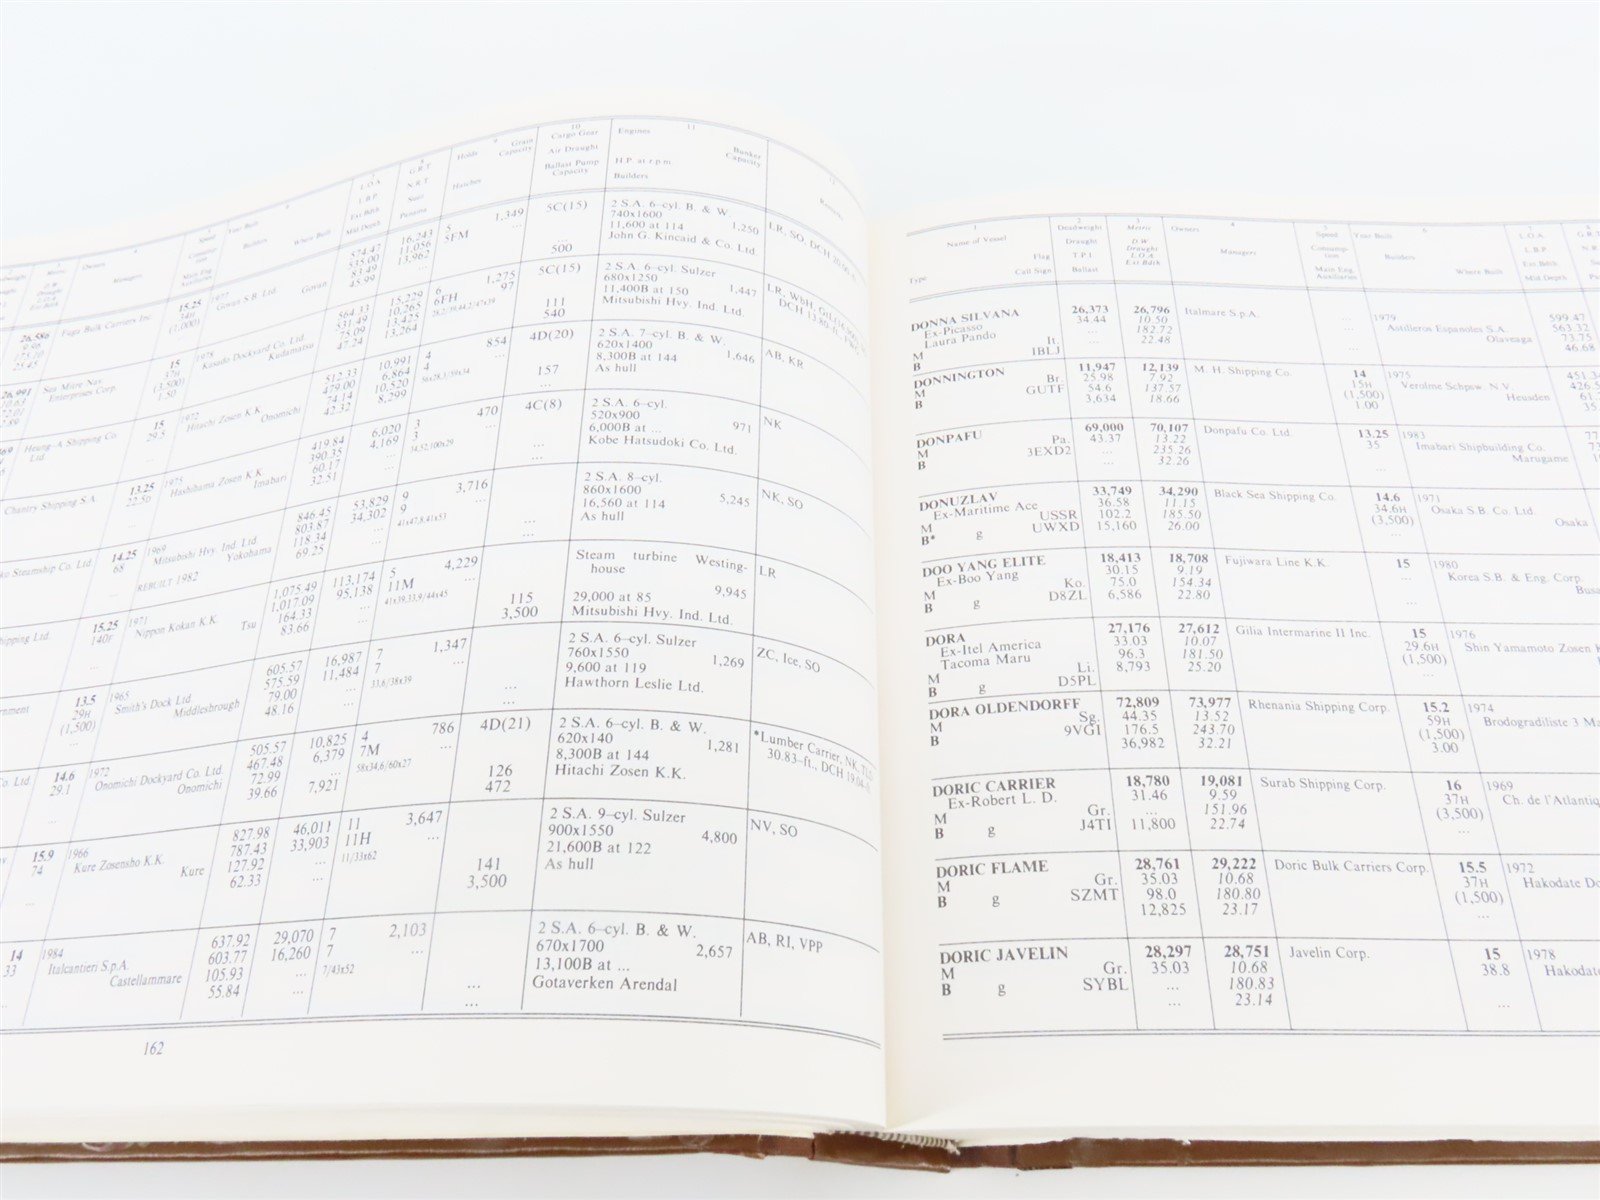 10
Cargo Gear
Air Draught
Ballast Pump
Capacity
11
Engines
Bunker
Capacity
H.P. at r.p.m.
Builders
9
Holds Grain
Capacity
Hatches
8
G.R.T.
N.R.T.
Suez
Panama
L.O.A.
L.B.P.
Ext Bdth
Mld Depth
16,243
11,056
13,962
5 1,349
5FM
5C(15)
...
500
2 S.A. 6-cyl. B. & W.
740x1600 1,250
11,600 at 114
John G. Kincaid & Co. Ltd.
26,586
Fuga Bulk Carriers Inc.
15.25
34H
(1,000)
1977
Govan S.B. Ltd.
Govan
574.47
535.00
83.49
45.99
15,229
10,265
13,425
13,264
6 1,275
6FH 97
5C(15)
111
540
2 S.A. 6-cyl. Sulzer
680x1250 1,447
11,400B at 150
Mitsubishi Hvy. Ind. Ltd.
Sea Mitre Nav.
Enterprises Corp.
15
37H
(3,500)
1.50
1978
Kasado Dockyard Co. Ltd.
Kudamatsu
564.33
531.49
75.09
47.24
10,991
6,864
10,520
8,299
4 854
4
4D(20)
157
...
2 S.A. 7-cyl. B. & W.
620x1400 1,646
8,300B at 144
As hull
AB, KR
Heung-A Shipping Co.
Ltd.
15
29.5
1972
Hitachi Zosen K.K.
Onomichi
512.33
479.00
74.14
42.32
6,020
4,169
3 470
3
34,52;100x29
4C(8)
...
2 S.A. 6-cyl.
520x900
6,000B at ... 971
Kobe Hatsudoki Co. Ltd.
NK
Chantry Shipping S.A.
13.25
22.50
1975
Hashihama Zosen K.K.
Imabari
419.84
390.35
60.17
32.51
53,829
34,302
9 3,716
9
41x47,8,41x53
...
2 S.A. 8-cyl.
860x1600
16,560 at 114 5,245
As hull
NK, SO
Steamship Co. Ltd.
14.25
68
1969
Mitsubishi Hvy. Ind. Ltd.
Yokohama
REBUILT 1982
846.45
803.87
118.34
69.25
113,174
95,138
5 4,229
11M
41x39,33,9/44x45
115
3,500
Steam turbine Westing-
house
29,000 at 85 9,945
Mitsubishi Hvy. Ind. Ltd.
LR
Shipping Ltd.
15.25
140F
1971
Nippon Kokan K.K.
Tsu
1,075.49
1,017.09
164.33
83.66
16,987
11,484
7 1,347
7
33,6/38x39
...
2 S.A. 6-cyl. Sulzer
760x1550 1,269
9,600 at 119
Hawthorn Leslie Ltd.
ZC, Ice, SO
13.5
29H
(1,500)
1965
Smith's Dock Ltd.
Middlesbrough
605.57
575.59
79.00
48.16
10,825
6,379
...
7,921
4 786
7M
58x34,6/60x27
4D(21)
126
472
2 S.A. 6-cyl. B. & W.
620x140
8,300B at 144 1,281
Hitachi Zosen K.K.
*Lumber Carrier, NK, TLD
30.83-ft., DCH
Co. Ltd.
14.6
29.1
1972
Onomichi Dockyard Co. Ltd.
Onomichi
505.57
467.48
72.99
39.66
46,011
33,903
11 3,647
11H
11/33x62
141
3,500
2 S.A. 9-cyl. Sulzer
900x1550
21,600B at 122 4,800
As hull
NV, SO
15.9
74
1966
Kure Zosensho K.K.
Kure
827.98
787.43
127.92
62.33
29,070
16,260
7 2,103
7
7/43x52
...
2 S.A. 6-cyl. B. & W.
670x1700
13,100B at ... 2,657
Gotaverken Arendal
AB, RI, VPP
14
33
1984
Italcantieri S.p.A.
Castellammare
637.92
603.77
105.93
55.84
162
1
Name of Vessel
Flag
Type Call Sign
2
Deadweight
Draught
T.P.I
Ballast
3
Metric
D.W
Draught
L.O.A
Ext Bdth
4
Owners
Managers
5
Speed
Consump-
tion
Main Eng.
Auxiliaries
6
Year Built
Builders
Where Built
7
L.O.A.
L.B.P.
Ext Bdth
Mld Depth
DONNA SILVANA 26,373 26,796 Italmare S.p.A. ... 1979 599.47
Ex-Picasso 34.44 10.50 Astilleros Espanoles S.A. 563.32
Laura Pando 182.72 Olaveaga 73.75
M It. 22.48 46.68
B IBLJ
DONNINGTON 11,947 12,139 M. H. Shipping Co. 14 1975
M Br. 25.98 7.92 15H Verolme Schpsw. N.V.
B GUTF 54.6 137.57 (1,500) Heusden
3,634 18.66 1.00
DONPAFU 69,000 70,107 Donpafu Co. Ltd. 13.25 1983
M Pa. 43.37 13.22 35 Imabari Shipbuilding Co.
B 3EXD2 ... 235.26 Marugame
... 32.26 ...
DONUZLAV 33,749 34,290 Black Sea Shipping Co. 14.6 1971
Ex-Maritime Ace 36.58 11.15 34.6H Osaka S.B. Co. Ltd.
M USSR 102.2 185.50 (3,500) Osaka
B* g UWXD 15,160 26.00 ...
DOO YANG ELITE 18,413 18,708 Fujiwara Line K.K. 15 1980
Ex-Boo Yang 30.15 9.19 ... Korea S.B. & Eng. Corp.
M Ko. 75.0 154.34
B g D8ZL 6,586 22.80 ...
DORA 27,176 27,612 Gilia Intermarine II Inc. 15 1976
Ex-Itel America 33.03 10.07 29.6H Shin Yamamoto Zosen
Tacoma Maru 96.3 181.50 (1,500)
M Li. 8,793 25.20 ...
B g D5PL
DORA OLDENDORFF 72,809 73,977 Rhenania Shipping Corp. 15.2 1974
M Sg. 44.35 13.52 59H Brodogradiliste 3 Ma
B 9VGI 176.5 243.70 (1,500)
36,982 32.21 3.00
DORIC CARRIER 18,780 19,081 Surab Shipping Corp. 16 1969
Ex-Robert L. D. 31.46 9.59 37H Ch. de l'Atlantiq
M Gr. ... 151.96 (3,500)
B g J4TI 11,800 22.74 ...
DORIC FLAME 28,761 29,222 Doric Bulk Carriers Corp. 15.5 1972
M Gr. 35.03 10.68 37H Hakodate Do
B g SZMT 98.0 180.80 (1,500)
12,825 23.17 ...
DORIC JAVELIN 28,297 28,751 Javelin Corp. 15 1978
M Gr. 35.03 10.68 38.8 Hakodate
B g SYBL ... 180.83
... 23.14 ...